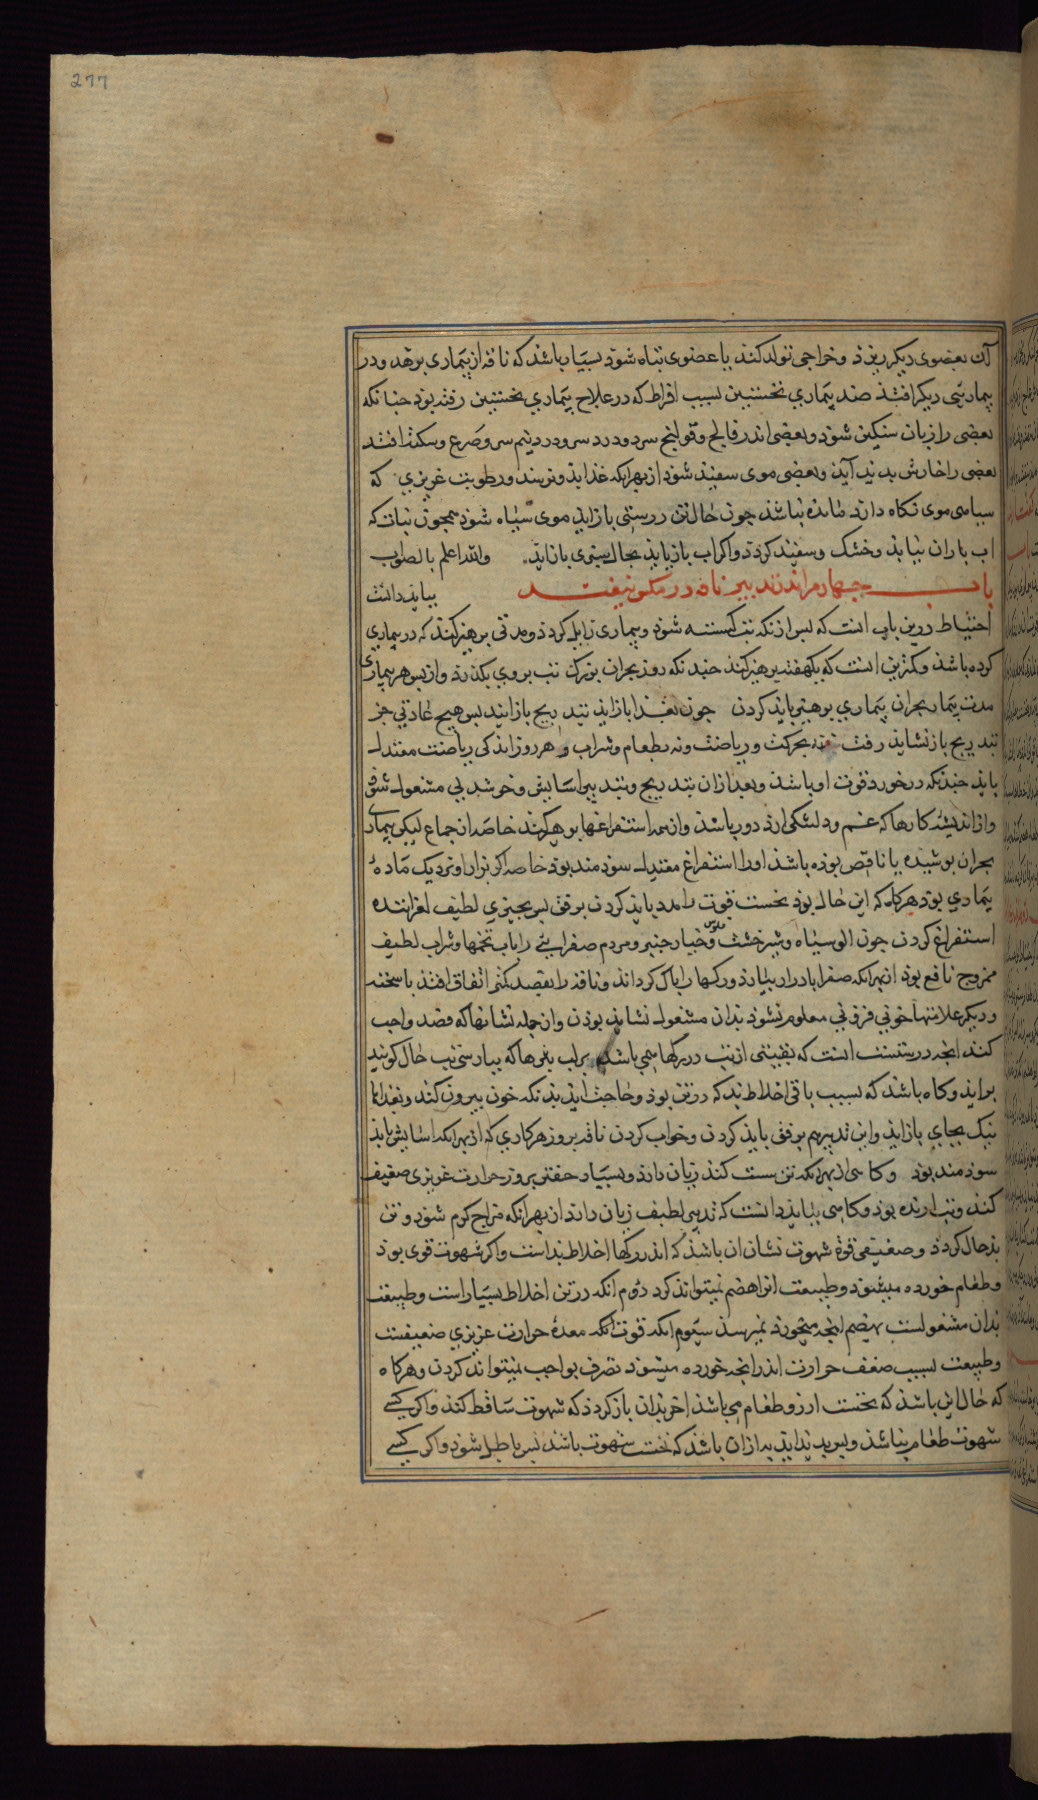 277
آن بعضوی دیکر ریزذ و خراجی تولد کند یا عضوی تباه شوذ بسیار باشد که ناقه از بیماری برهد و در
بیمارئی دیکر افتذ ضد بیماری نخستین بسبب افراط که در علاج بیماری نخستین رفته بوذ جنانکه
بعضی را زبان سنکین شوذ و بعضی اندر فالج و قولنج سرد و درد سر و درد نیم سر و صرع و سکته افتد
بعضی را خارش بدید آیذ و بعضی موی سفیذ شوذ از بهر انکه غذا بذو نرسد و رطوبت غریزی که
سیاهی موی نکاه دارد مانده نباشذ جون حال تن درستی باز ایذ موی سیاه شوذ همجون نبات که
اب باران نیابذ و خشک و سفید کردذ و اکر اب بازیابذ بحال سبزی باز ایذ والله اعلم بالصواب
باب جهارم اندر تدبیر ناقه در سکون نیفت بباید دانست
احتیاط درین باب انست که بس از انکه تب کسسته شوذ و بیماری زایل کردذ و مدتی برهیز کند که در بیماری
کرده باشذ و کمترین انست که یکهفته برهیز کند جندانکه روز بحران بزرک تب بروی بکذرد و از بس هر بیماری
مدت بیمار بحران بیماری برهیز بایذ کردن جون بغذا باز ایذ بتدریج باز ایذ بس هیج عادتی جز
بتدریج باز نشایذ رفت نه بحرکت و ریاضت و نه بطعام و شراب و هر روز اندکی ریاضت معتدل
بایذ جندانکه در خورد قوت او باشذ و بعد از ان بتدریج و بتدبیر اسایش و خوشدلی مشغول شوذ
و از اندیشه کارها که غم و دلتنکی ارذ دور باشذ و از همه استفراغها برهیز کند خاصه از جماع لیکن بیمار
بحران بوشیده یا ناقص بوذه باشذ او را استفراغ معتدل سوذمند بوذ خاصه اکر نزار و نزدیک ماده
بیماری بوذ هرکاه که این حال بوذ نخست قوت را مدد بایذ کردن برفق بس بجیزی لطیف لغزاننده
استفراغ کردن جون الو سیاه و شیر خشت و فلوس خیار جنبر و مردم صفرایی را باب تخمها و شراب لطیف
ممزوج نافع بوذ از بهر انکه صفرا بادرار بیارد و رکها را باک کرداند و ناقه را بقصد کمتر اتفاق افتذ با سخنه
و دیکر علامتها خونی فزونی معلوم نشوذ بذان مشغول نشایذ بوذن و ان جمله نشانها که فصد واجب
کند انجه درستست انست که بقیتی از تب در رکها می باشد بر لب بثرها که ببارسی تب خال کویند
براید و کاه باشذ که بسبب باقی اخلاط بذ که در تن بوذ و حاجت ایذ بذانکه خون بیرون کند و بغذاها
نیک بجای باز ایذ و این تدبیر هم برفق بایذ کردن و خواب کردن ناقه بروز هر کاری که از بهر انکه اسایش یابذ
سوذمند بوذ و کاهی از بهر انکه تن سست کند زیان دارذ و بسیار خفتن بروز حرارت غریزی ضعیف
کند و تب ارنده بوذ و کاهی ببایذ دانست که تدبیر لطیف زیان دارد از بهر انکه مزاج کرم شوذ و تن
بذ حال کردذ و ضعیفی قوة شهوت نشان ان باشذ که اندر رکها اخلاط بذ است و اکر شهوت قوی بوذ
و طعام خورده میشوذ و طبیعت انرا هضم نمیتواند کرد دوم انکه در تن اخلاط بسیار است و طبیعت
بذان مشغولست بهضم انجه میخورذ نمیرسذ سیوم انکه قوت انکه معده حرارت غریزی ضعیفست
و طبیعت بسبب ضعف حرارت اندر انجه خورده میشوذ تصرف بواجب نمیتواند کردن و هرکاه
که حال این باشذ که نخست ارزو طعام می باشذ اخر بذان باز کردذ که شهوت ساقط کند و اکر کسی
شهوت طعام نباشذ و بس بدید ایذ به از ان باشذ که نخست شهوت باشد بس باطل شوذ و اکر کسی